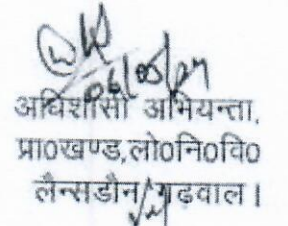 06/05/24
अधिशासी अभियन्ता,
प्रा0खण्ड,लो0नि0वि0
लैन्सडौन गढ़वाल।